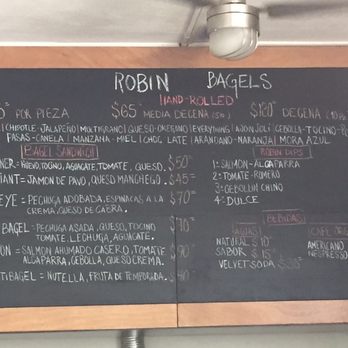 ROBIN BAGELS
HAND-ROLLED
POR PIEZA $65 MEDIA DECENA (5) $120 DECENA
CHIPOTLE-JALAPEÑO | MULTIGRANO | QUESO-OREGANO | EVERYTHING | AJONJOLI | CEBOLLA-TOCINO
PASAS-CANELA | MANZANA-MIEL | CHOCOLATE | ARANDANO-NARANJA | MORA AZUL
BAGEL SANDWICH
= HUEVO, TOCINO, AGUACATE, TOMATE, QUESO. $50
= JAMON DE PAVO, QUESO MANCHEGO. $45
= PECHUGA ADOBADA, ESPINACAS A LA $70
CREMA, QUESO DE CABRA.
BAGEL = PECHUGA ASADA, QUESO, TOCINO
TOMATE, LECHUGA, AGUACATE.
= SALMON AHUMADO CASERO, TOMATE
ALCAPARRA, CEBOLLA, QUESO CREMA.
BAGEL = NUTELLA, FRUTA DE TEMPORADA.
ROBIN DIPS
1: SALMON-ALCAPARRA
2: TOMATE-ROMERO
3: CEBOLLIN CHINO
4: DULCE
BEBIDAS
AGUAS
NATURAL $10
SABOR $15
VELVET SODA
CAFE
AMERICANO
NESPRESSO